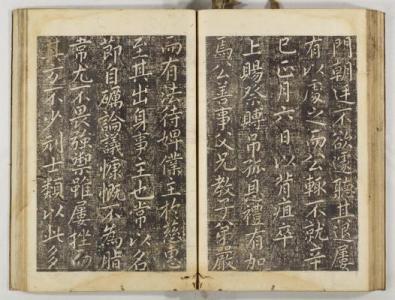 門朝廷不欲遽聽其退屢
有以處之而公輒不就辛
巳正月六日以背疽卒
上賜祭賻弔孤具禮有加
焉公善事父兄教子弟嚴
而有法待婢僕主於慈惠
至其出身事主也常以名
節自礪論議慷慨不為脂
韋尤不畏強禦雖屢挫而
其不少刓士類以此多